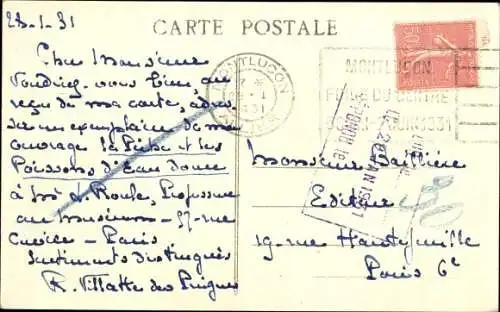 CARTE POSTALE
28-1-31
Cher Monsieur
Voudriez-vous bien, au
reçu de ma carte, adres
ser un exemplaire de mon
ouvrage la Pêche et les
Poissons d'Eau douce
à Mr L. Roule, Professeur
au Museum - 57 - rue
Cuvier - Paris
Sentiments distingués
R. Villatte des Prûgnes
MONTLUÇON
ALLIER
MONTLUÇON
FOIRE DU CENTRE
JUIN 1931
JAN 1931
Monsieur Baillière
Editeur
19 - rue Hautefeuille
Paris 6e